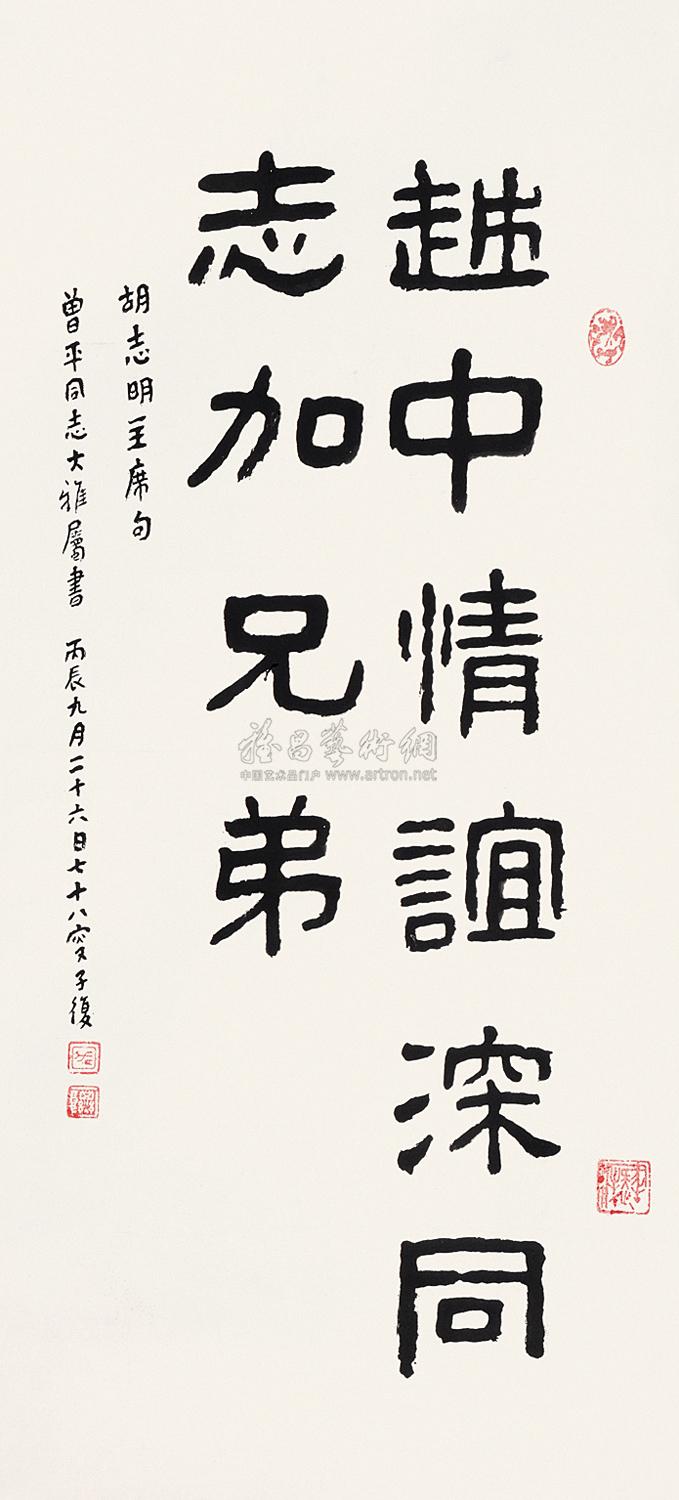 越中情誼深同
志加兄弟
胡志明主席句
曾平同志大雅屬書 丙辰九月二十六日七十八叟子復
雅昌藝術網
中国艺术品门户 www.artron.net